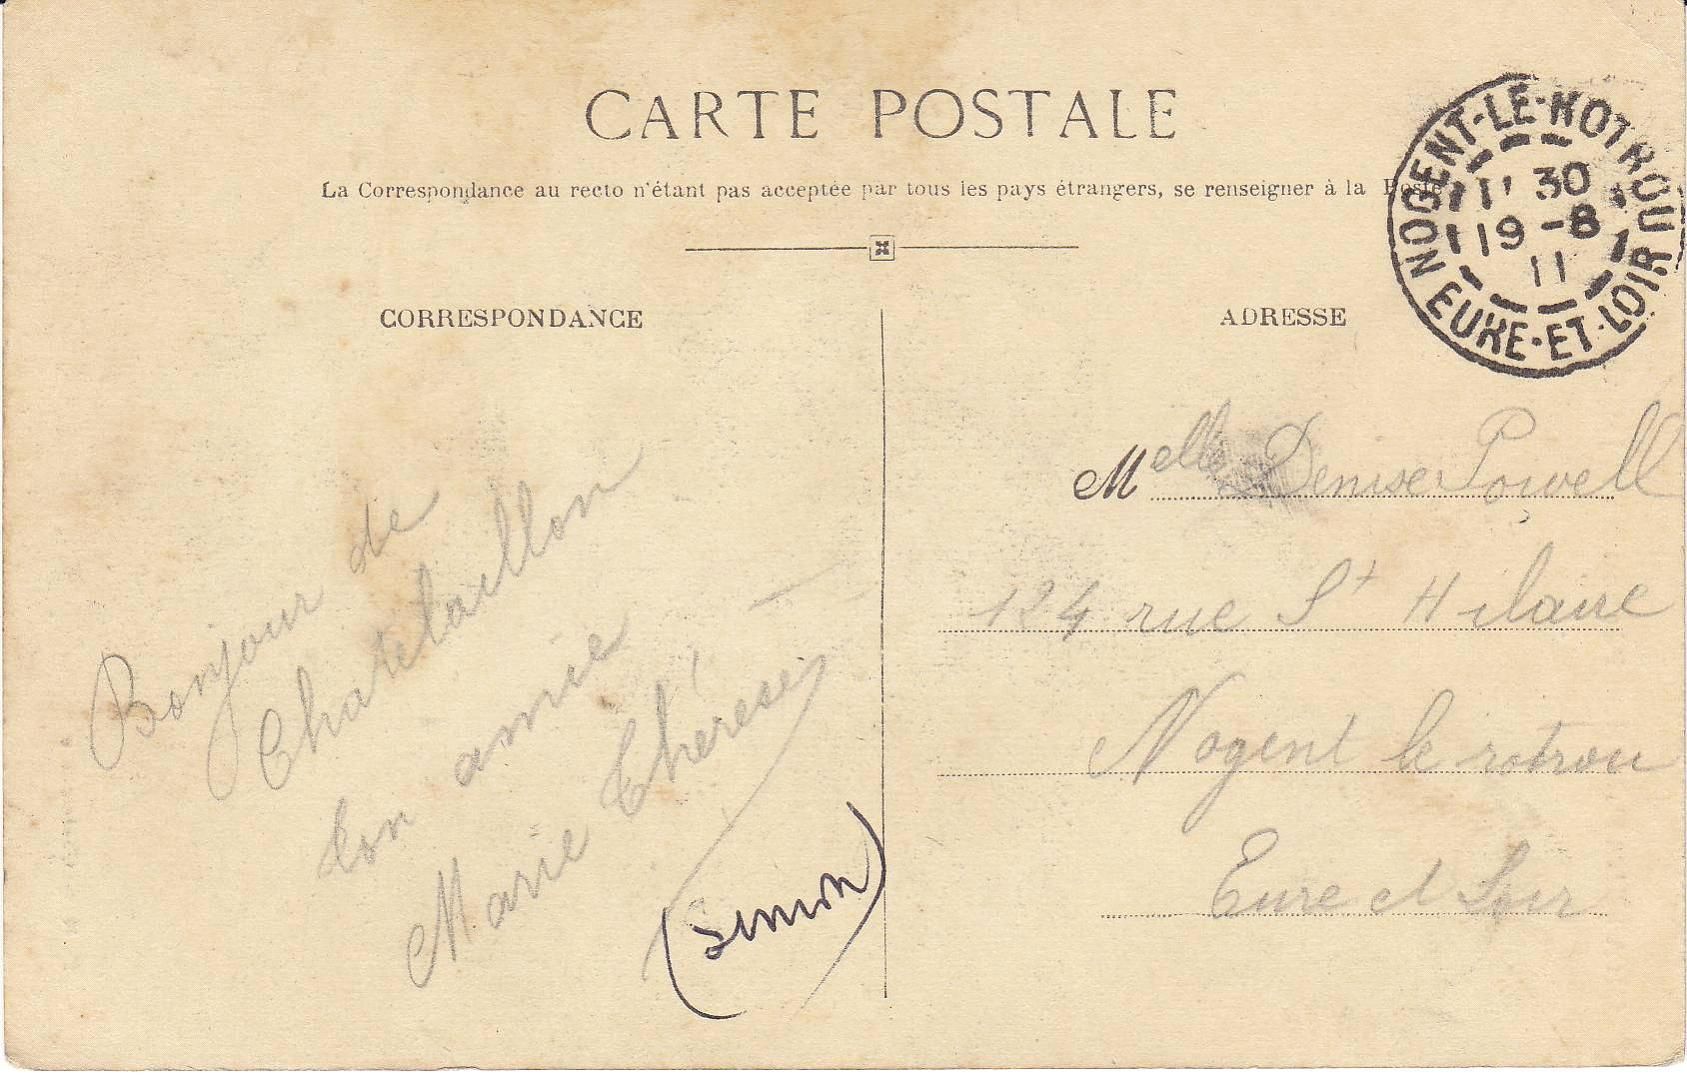 CARTE POSTALE
La Correspondance au recto n'étant pas acceptée par tous les pays étrangers, se renseigner à la Poste
NOGENT-LE-NOTROU
11 30
19 -8
11
EURE-ET-LOIR
CORRESPONDANCE
Bonjour de
Chatelaillon
ton amie
Marie Thérèse
(Simon)
ADRESSE
Melle Denise Powell
124 rue St Hilaire
Nogent le rotrou
Eure et Loir